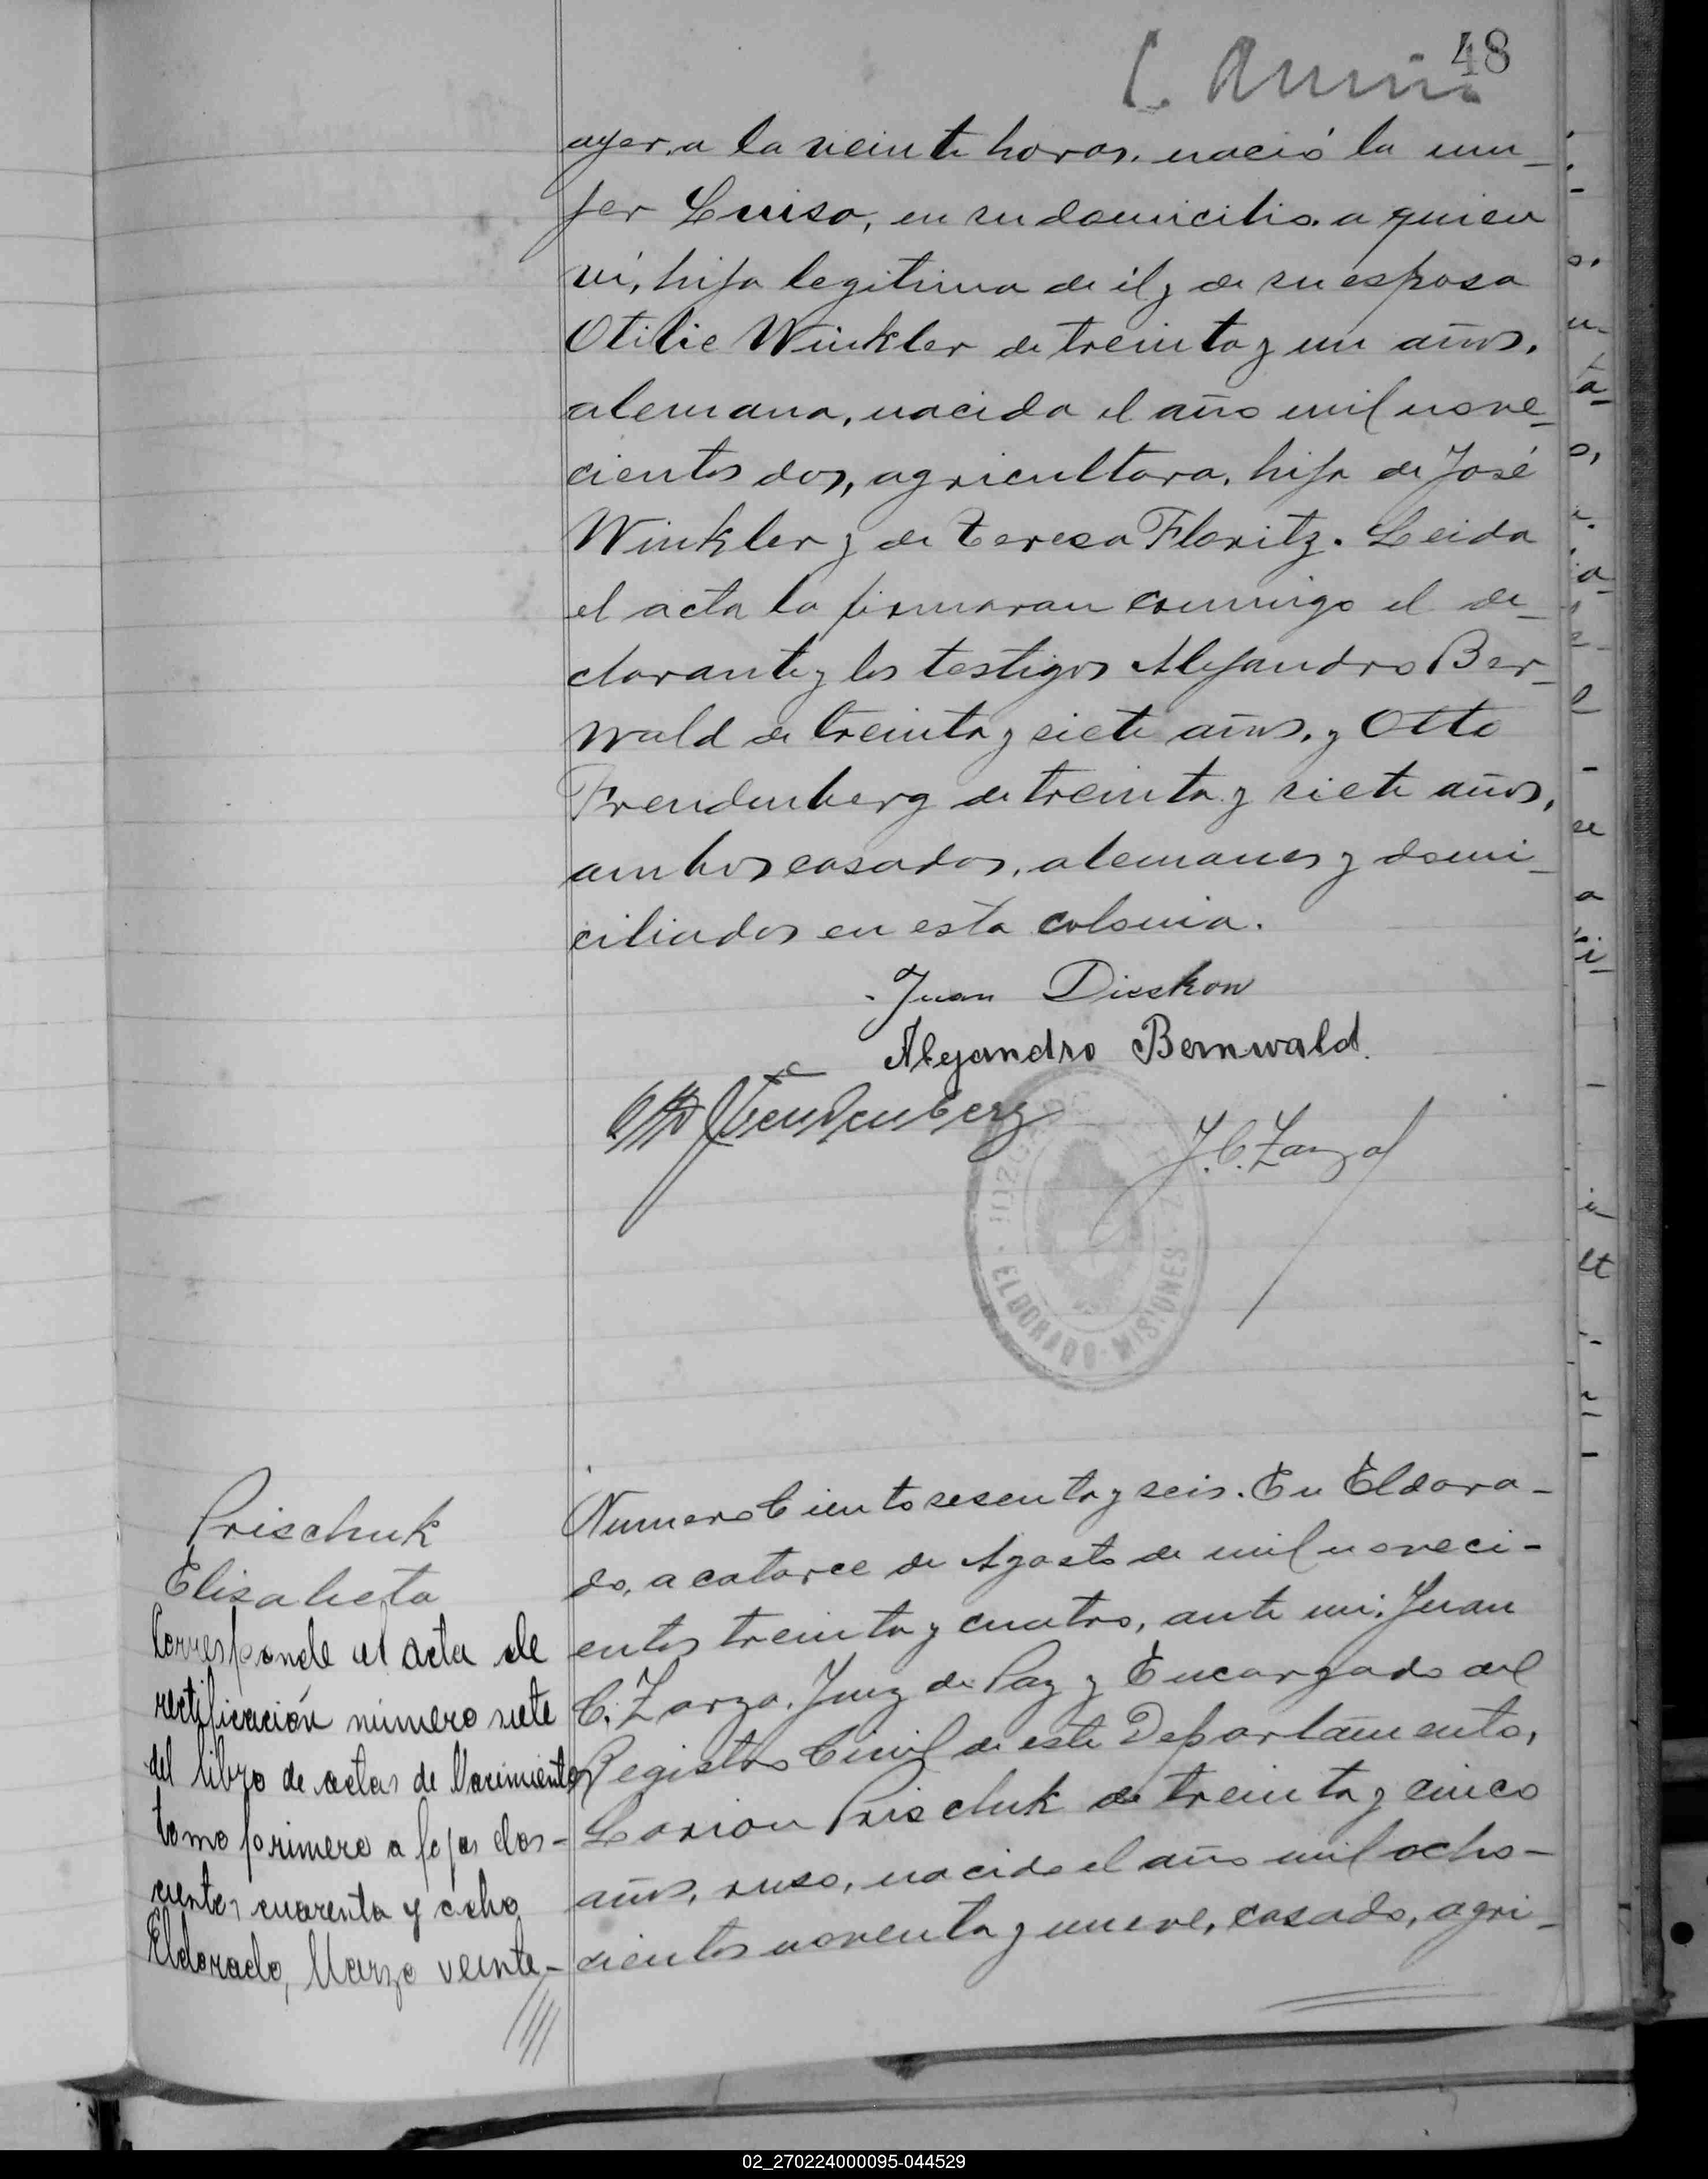 48
ayer, a la veinte horas, nació la mu-
jer Luisa, en su domicilio, a quien
ví, hija legitima de él y de su esposa
Otilie Winkler de treinta y un años,
alemana, nacida el año mil nove-
cientos dos, agricultora, hija de José
Winkler y de Teresa Floritz. Leida
el acta la firmaran conmigo el de-
clarante y los testigos Alejandro Ber-
wald de treinta y siete años, y Otto
Freudenberg de treinta y siete años,
ambos casados, alemanes y domi-
ciliados en esta colonia.
Juan Dieckow
Alejandro Bernwald.
Otto Freudenberg
J. C. Zarza
JUZGADO DE PAZ
ELDORADO - MISIONES
Prischuk
Elisabeta
Corresponde el acta de
rectificación número siete
del libro de actas de Nacimientos
tomo primero a fojas dos-
cientos cuarenta y ocho
Eldorado, Marzo veinte-
Numero Ciento sesenta y seis. En Eldora-
do, a catorce de Agosto de mil noveci-
entos treinta y cuatro, ante mi, Juan
C. Zarza, Juez de Paz y Encargado del
Registro Civil de este Departamento,
Larion Prischuk de treinta y cinco
años, ruso, nacido el año mil ocho-
cientos noventa y nueve, casado, agri-
02_270224000095-044529